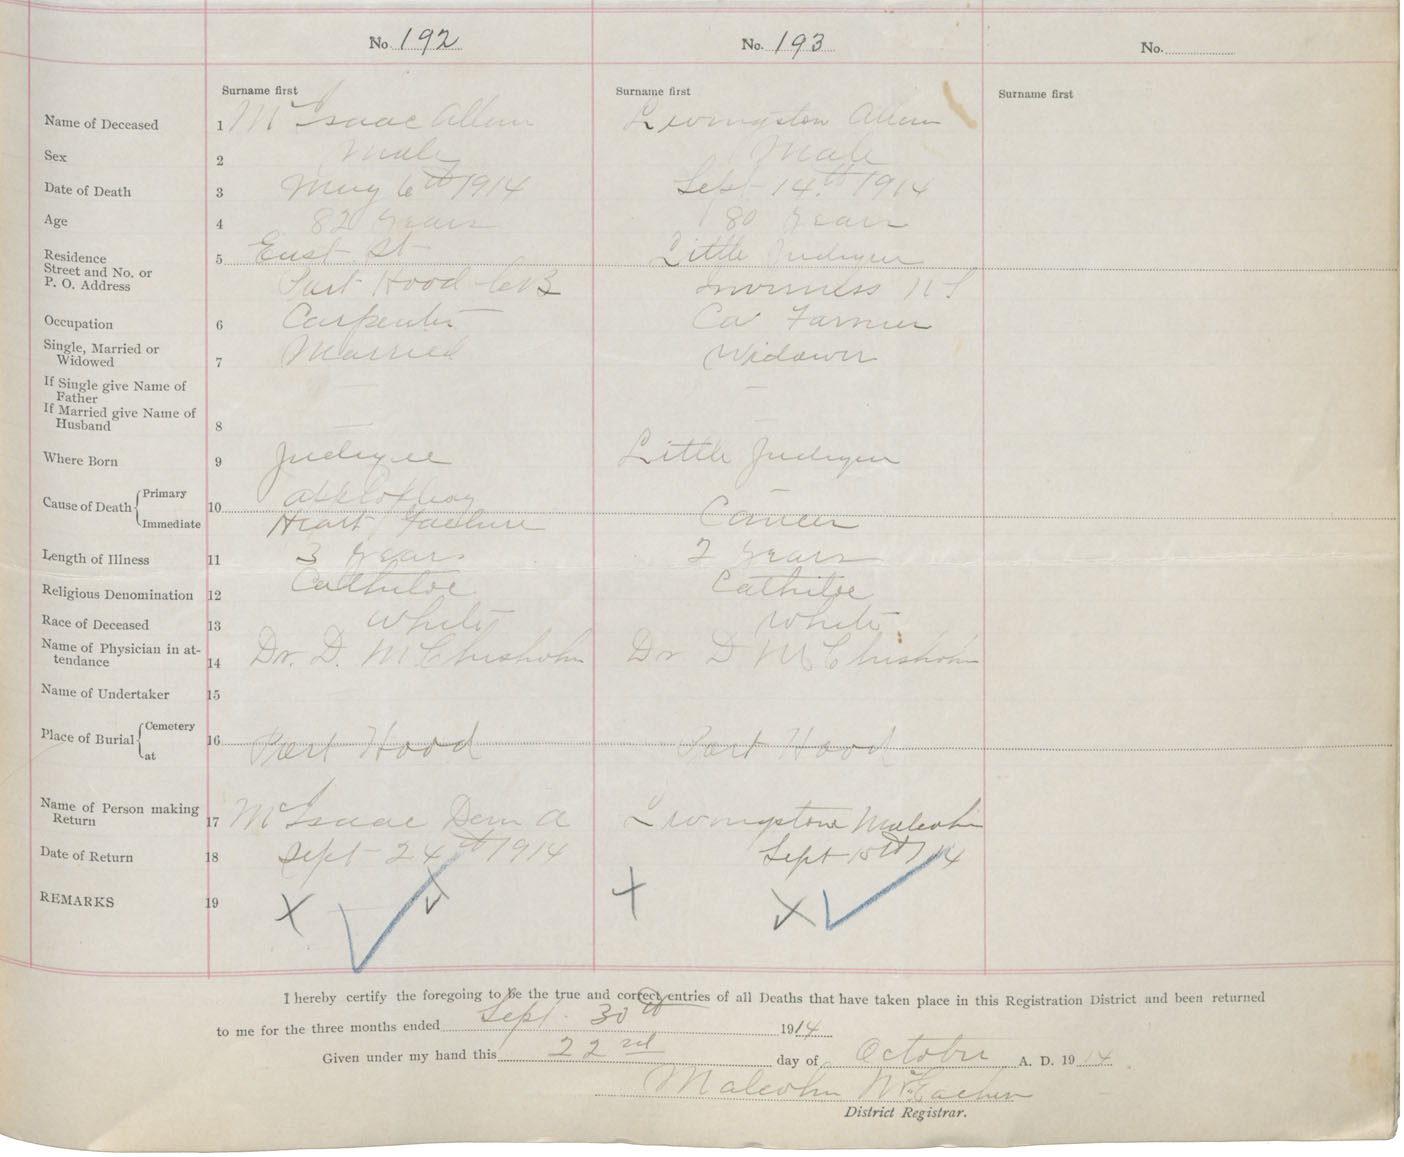 No. 192
No. 193
No.
Surname first
Surname first
Surname first
Name of Deceased 1 McIsaac Allan Livingston Allan
Sex 2 Male Male
Date of Death 3 May 6th 1914 Sept 14th 1914
Age 4 82 Years 80 Years
Residence 5 East St Little Judique
Street and No. or
P. O. Address Port Hood CB Inverness NS
Occupation 6 Carpenter Co Farmer
Single, Married or
Widowed 7 Married Widower
If Single give Name of
Father
If Married give Name of
Husband 8
Where Born 9 Judique Little Judique
Cause of Death Primary 10
Immediate Heart Faelure Cancer
Length of Illness 11 3 Years 2 Years
Religious Denomination 12 Cathiloe Cathiloe
Race of Deceased 13 White White
Name of Physician in at-
tendance 14 Dr. D. McChisholm Dr D McChisholm
Name of Undertaker 15
Place of Burial Cemetery 16 Port Hood Port Hood
at
Name of Person making
Return 17 McIsaac Dan A Livingstone Malcolm
Date of Return 18 Sept 24th 1914 Sept 15th 14
REMARKS 19
I hereby certify the foregoing to be the true and correct entries of all Deaths that have taken place in this Registration District and been returned
to me for the three months ended Sept. 30th 1914
Given under my hand this 22nd day of October A. D. 1914
Malcolm McEachen
District Registrar.